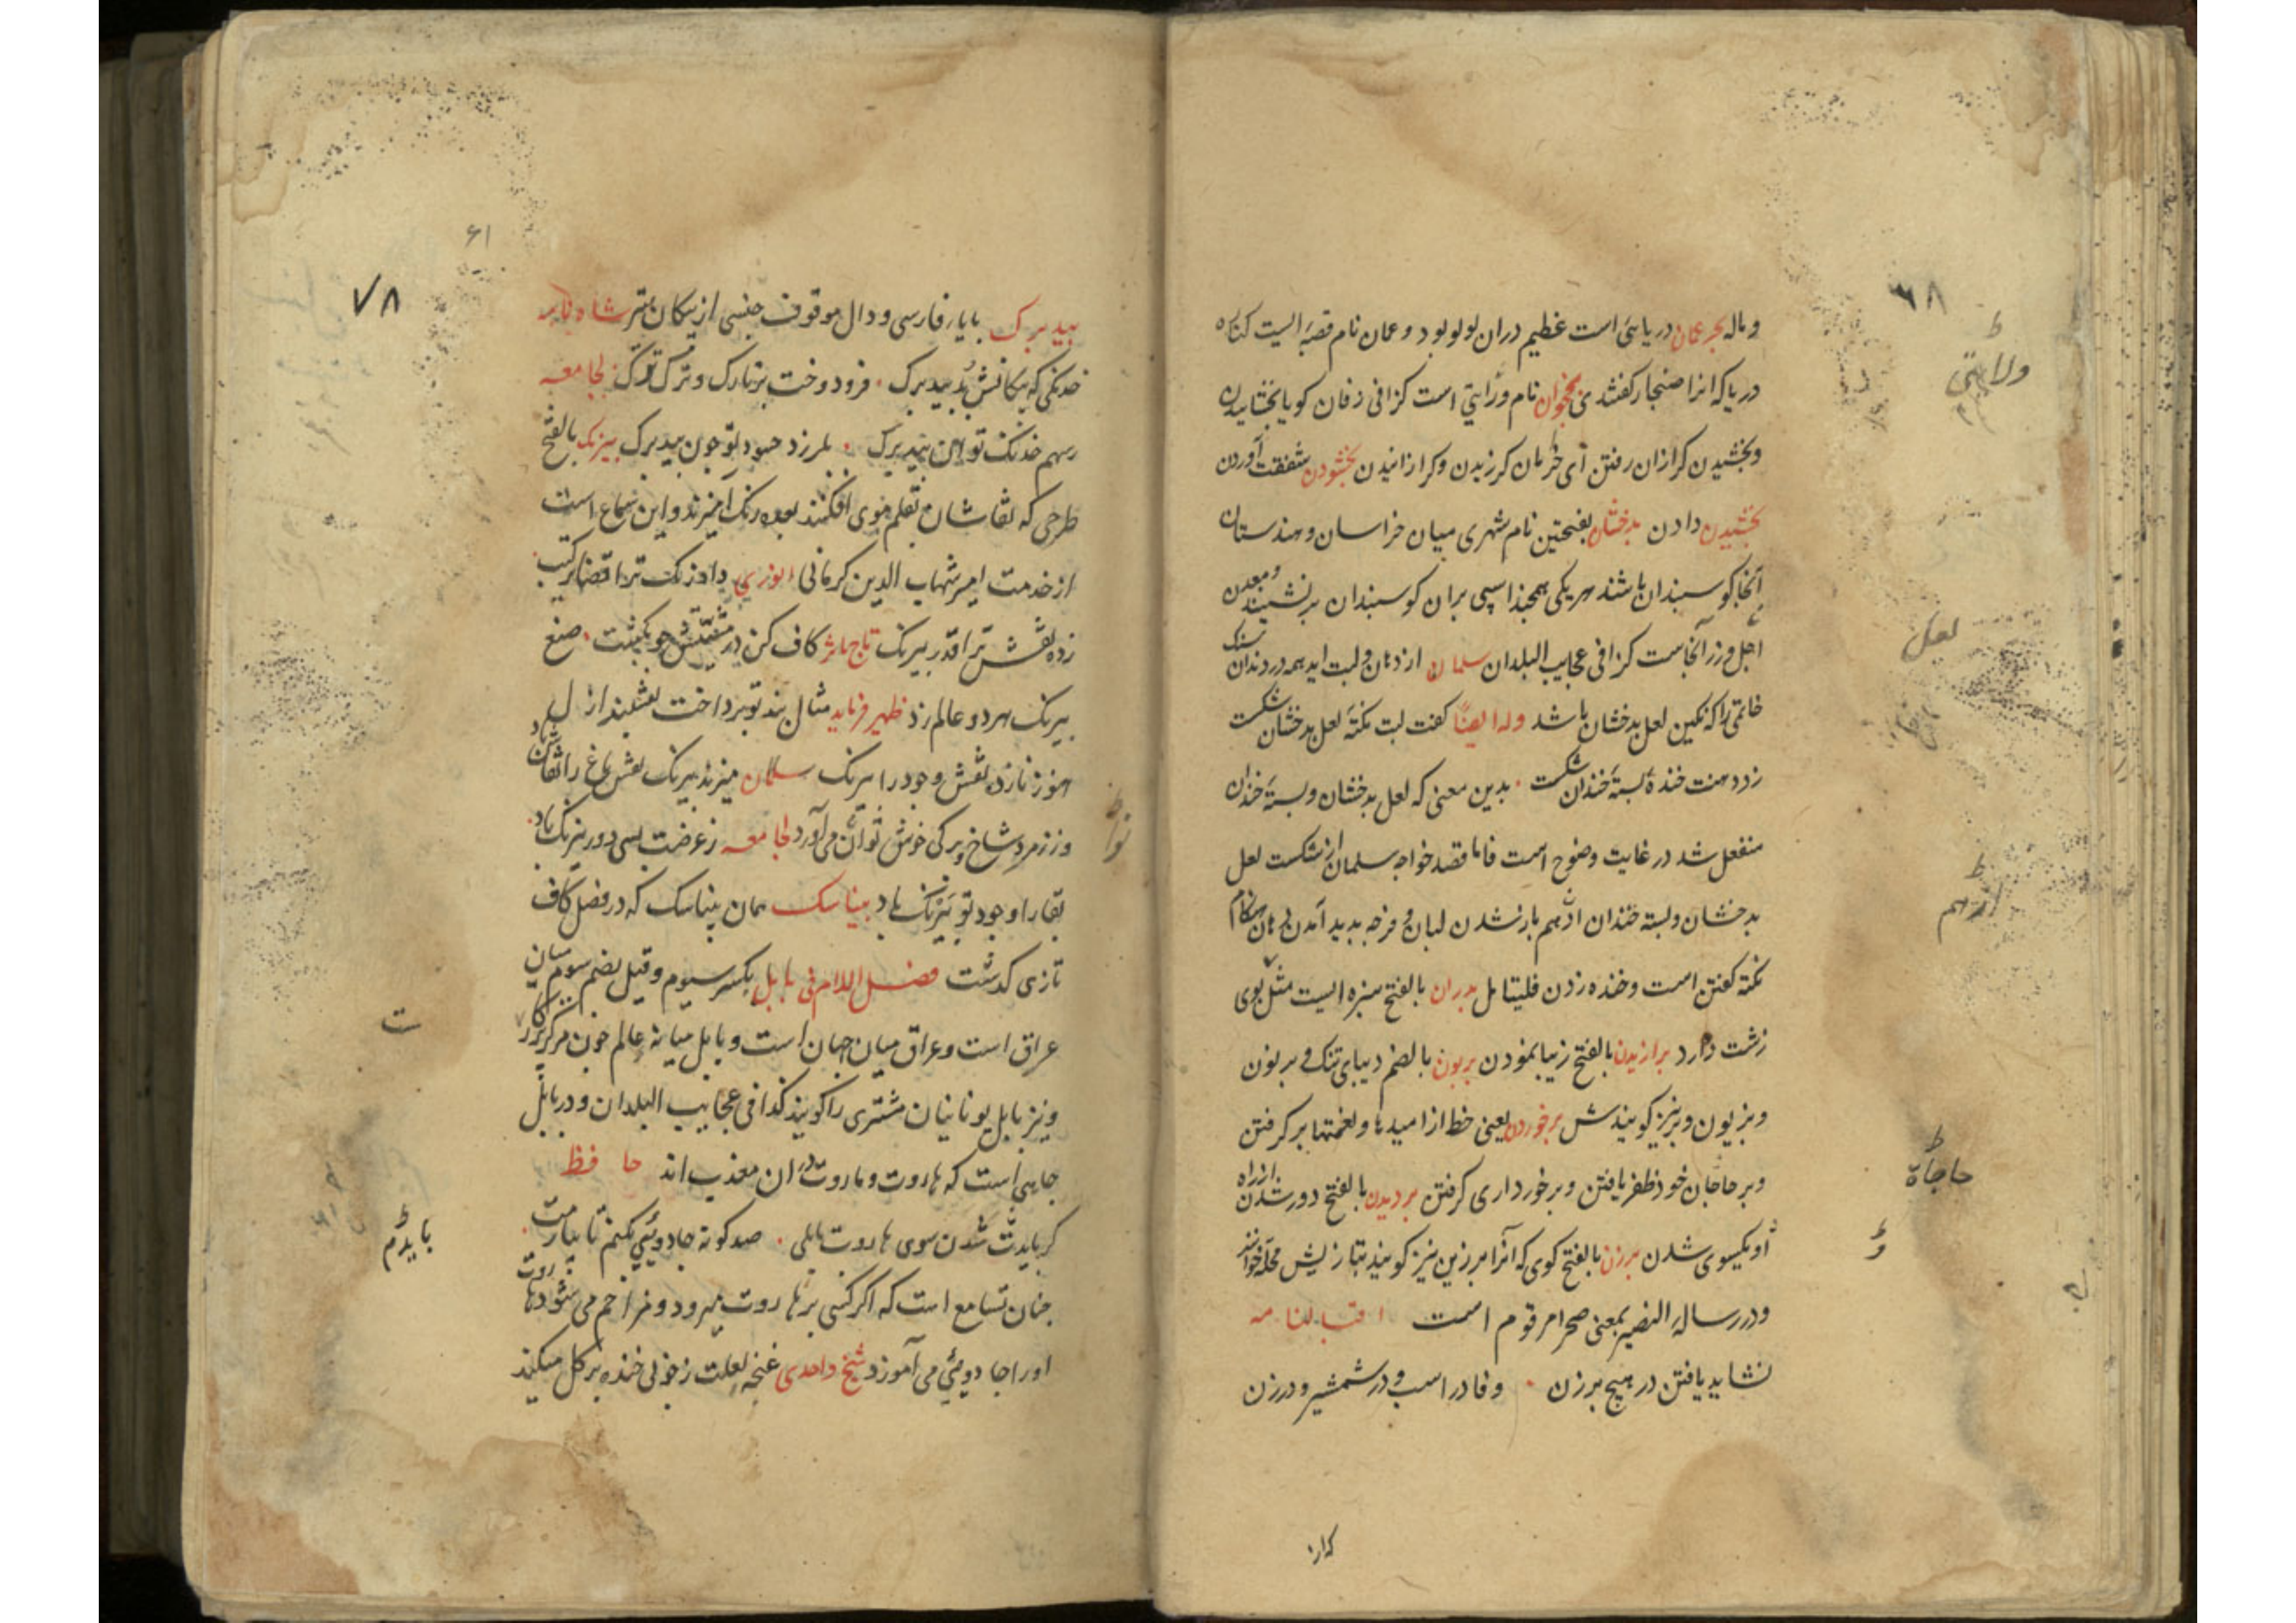 ۶۸
وماله بحر عمان دریائی است عظیم دران لولو بود و عمان نام قصبه ایست کناره
دریا که انرا صنجار کفتندی نخجوان نام ورایتی است کزافی زفان کویا بخشاییدن
وبخشیدن کرازان رفتن ای خرمان کرزیدن وکرازانیدن بخشودن شفقت آوردن
بخشیدن دادن بدخشان بفتحتین نام شهری میان خراسان وهندستان
آنجا کوسبندان باشند هر یکی همچند اسپی بران کوسبندان برنشینند ومعدن
لعل وزر آنجاست کزافی عجایب البلدان سلمان از دهان ولبت اید همه در دندان سنک
خاتمی را که نکین لعل بدخشان باشد وله ایضًا کفت لبت نکتهٔ لعل بدخشان شکست
زد دهنت خنده پستهٔ خندان شکست بدین معنی که لعل بدخشان وپستهٔ خندان
منفعل شد در غایت وضوح است فاما قصد خواجه سلمان از شکست لعل
بدخشان وپسته خندان ازهم باز نشدن لبان و فرجه پدید آمدن دهان هنکام
نکته کفتن است وخنده زدن فلیتامل بدران بالفتح سبزه ایست مثل بوی
زشت دارد برازیدن بالفتح زیبا نمودن بربون بالضم دیبای تنک و بربون
وبزیون وبزیز کویندش برخوردن یعنی حظ از امیدها ونعمتها برکرفتن
وبر حاجات خود ظفر یافتن وبرخورداری کرفتن بردیدن بالفتح دور شدن از راه
و یکسوی شدن برزن بالفتح کوی که آنرا برزین نیز کویند بتازیش محله خوانند
ودر رسالهٔ النصیر بمعنی صحرا مرقوم است اقبالنامه
نشاید یافتن در هیچ برزن وفا در اسب و در شمشیر و در زن
ولایتی
لعل
ازهم
حاجات
و
۶۱
۷۸
بیدبرک بابای فارسی ودال موقوف جنسی از پیکان تیر شاه نامه
خدنکی که پیکانش بد بیدبرک فرو دوخت بر تارک وترک ترک لجامعه
زسهم خدنک تو این بیدبرک بلرزد حسود تو چون بیدبرک بیرنک بالفتح
طرحی که نقاشان بقلم موی افکنند بعده رنک آمیزند واین سماع است
از خدمت امیر شهاب الدین کرمانی انوری
زده نقش ترا قدر بیرنک تاج ماثر کاف کن در مشیتش چو بکشت صنع
بیرنک هر دو عالم زد ظهیر فریاب مثال بند تو پرداخت نقشبند ازل
هنوز نازده نقش وجود را بیرنک سلمان میزند بیرنک نقش باغ را نقاش باد
وز زمرد شاخ وبرکی خوش توان می آورد لجامعه زعرضت بسی دور بیرنک باد
بقا را وجود تو بیرنک باد بیناسک همان بیناسک که در فصل کاف
تازی کذشت فصل اللام فی بابل بکسر سیوم وقیل بضم سوم میان
عراق است وعراق میان جهان است وبابل میانهٔ عالم چون مرکز پرکار
ونیز بابل یونانیان مشتری را کویند کذا فی عجایب البلدان ودر بابل
جایی است که هاروت وماروت دران معذب اند حافظ
کر بایدت شدن سوی هاروت بابلی صد کونه جادویی بکنم تا بیارمت
چنان تسامع است که اکر کسی بر هاروت میرود ومزاحم می شود هاروت
اورا جادویی می آموزد شیخ واحدی غنچه لعلت زخوبی خنده بر کل میکند
ت
بایدم